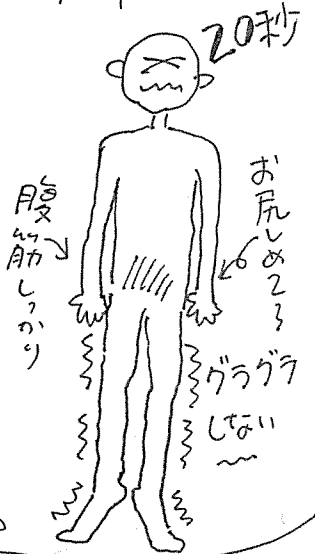 20秒
お尻しめてろ
腹筋しっかり
グラグラ
しない